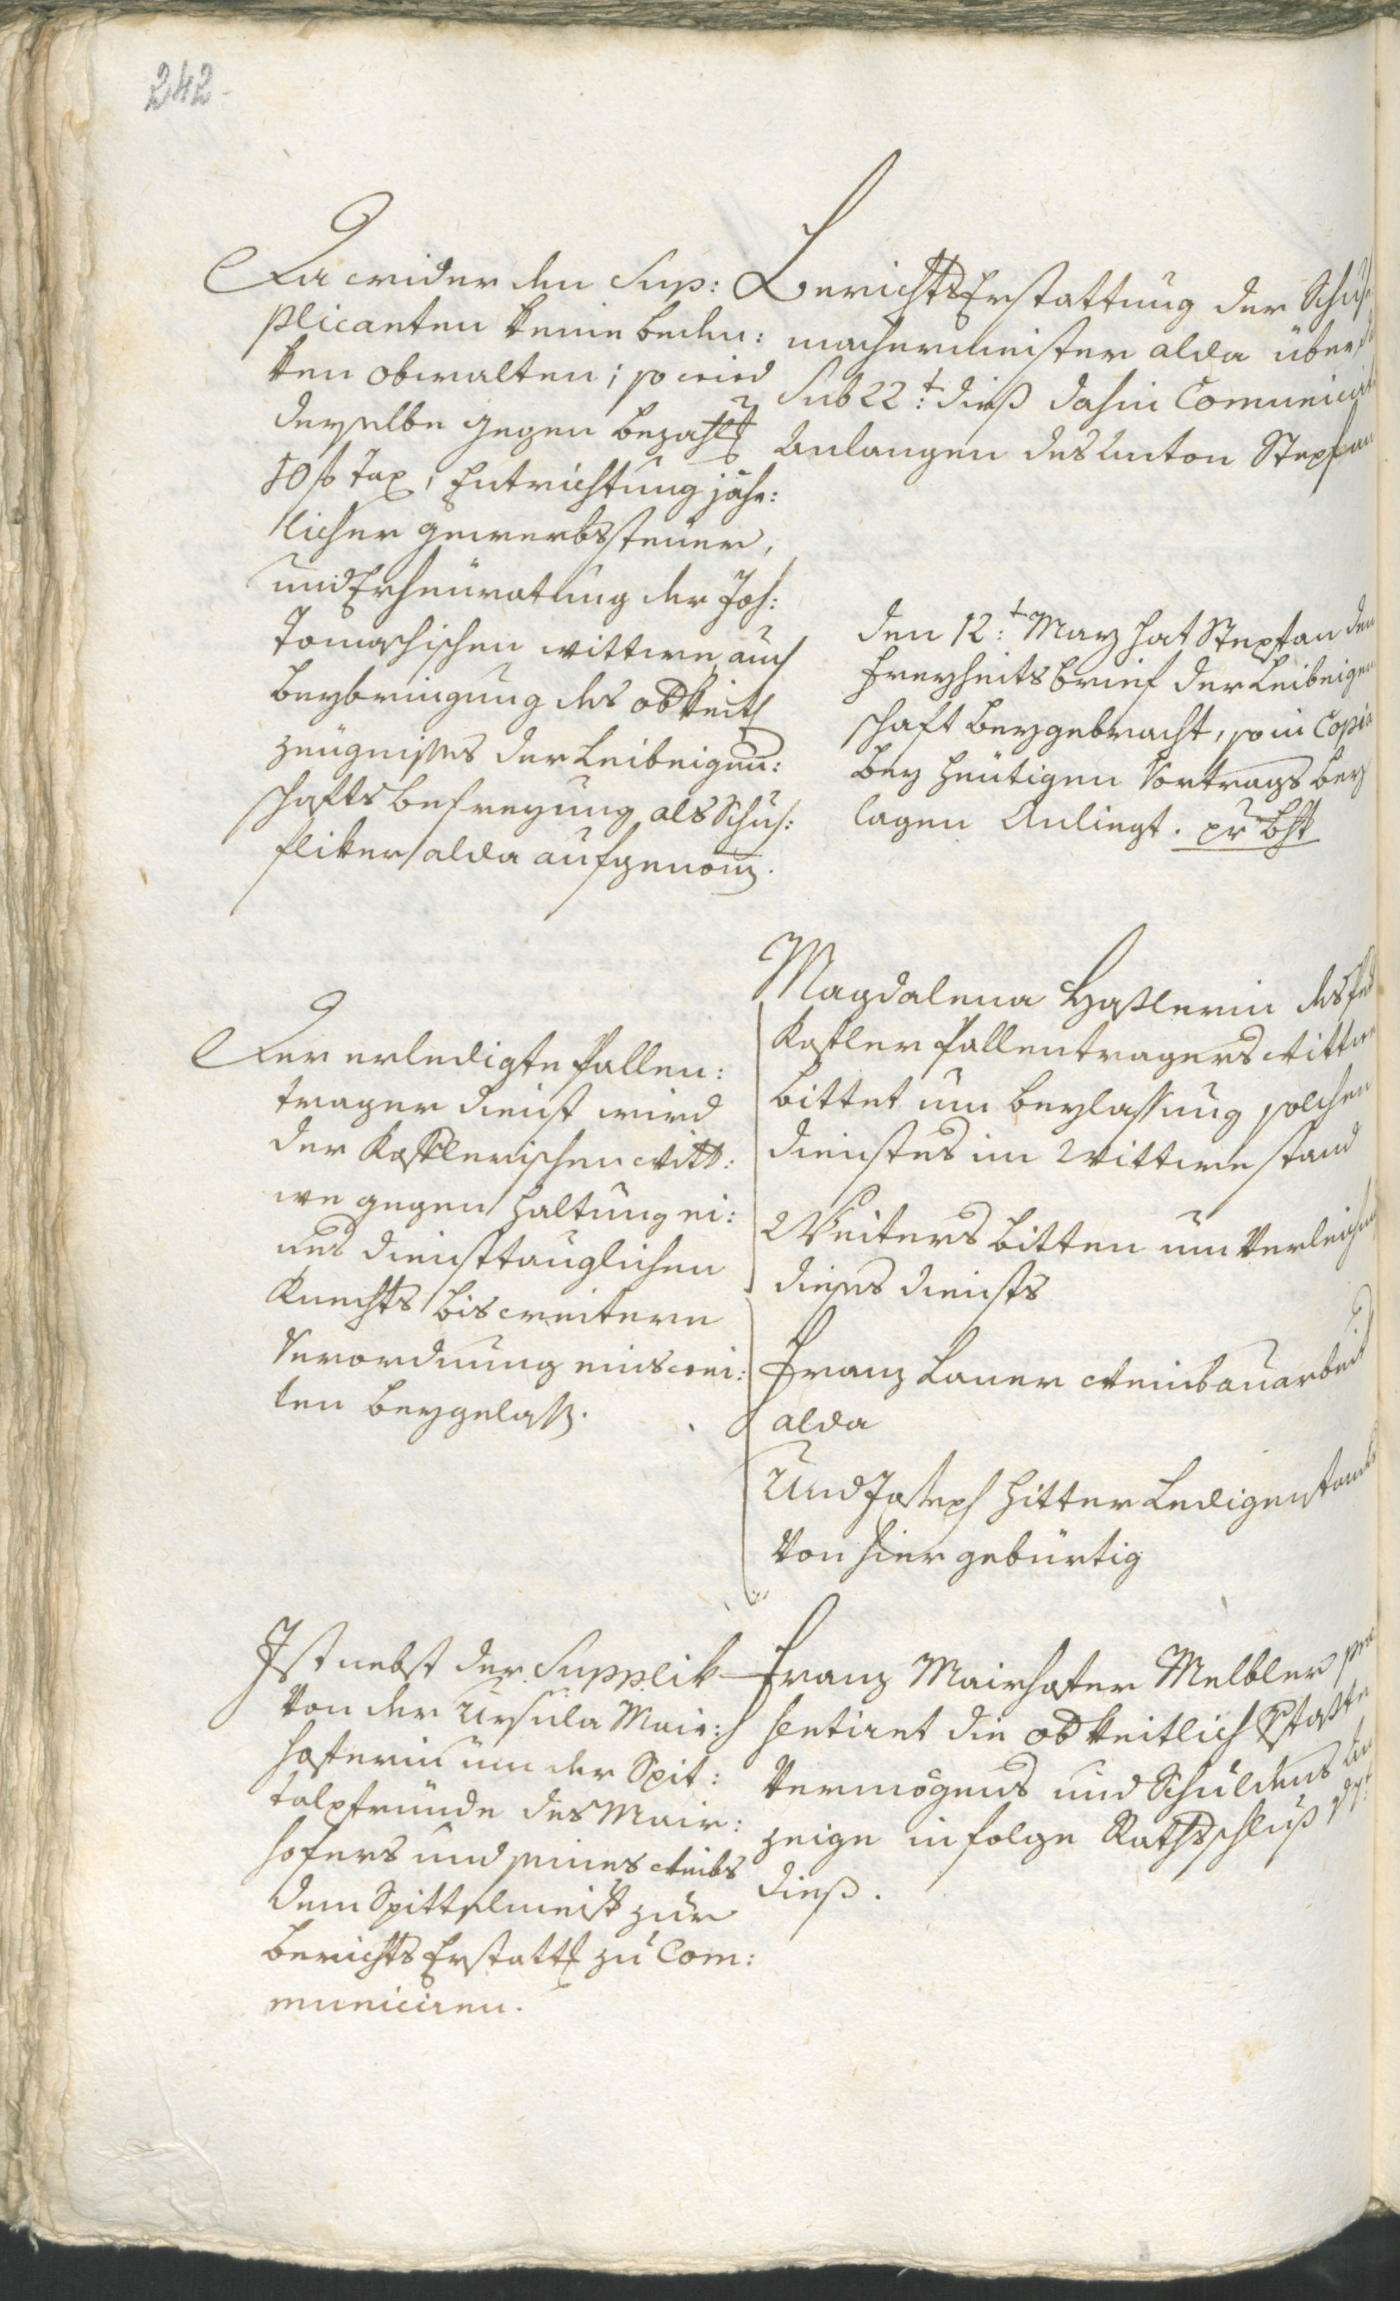 242
Da wider den Sup:
plicanten keine beden:
ken obwalten; so wird
derselbe gegen bezahlg
50 f Tax, Entrichtung jähr:
licher gewerbssteuer,
und Erheüratung der Joh:
Tomaschischen wittwe, auch
beybringung des obkeitl
zeügnisses der Leibeigen:
schafts befreyung als Schuh:
fliker alda aufgenom̅.
Berichts Erstattung der Schuh
machermeister alda über
Sub 22.t dieß dahin Comunicirt
Anlangen des Anton Stephan
den 12.t Marz hat Stephan den
freyheits brief der Leibeigen
schaft beygebracht, so in Copia
bey heütigen Vortrags bey
lagen Anliegt.
Der erledigte Pallen:
trager dienst wird
der Kastlerischen Witt:
we gegen haltung ei:
nes diensttauglichen
Knechts bis weitere
Verordnung einswei:
len beygelass.
Magdalena Haslerin des
Kastler Pallentragers Wittwe
bittet um beylassung solchen
dienstes im Wittwestand
Weiters bitten um Verleihung
dieses diensts
Franz Lauer Weinbauarbeit
alda
Und Joseph Hitter Ledigenstands
von hier gebürtig
Ist nebst der Supplik
von der Ursula Mair:
hoferin um der Spit:
talpfründe des Mair:
hofers und seines Weibs
dem Spittelmeist zur
berichts Erstattg zu Com:
municiren.
Franz Mairhofer Melbler prae
sentiret die obkeitlich
Vermögens und Schuldens An
zeige in folge Rathsschluß
dieß.